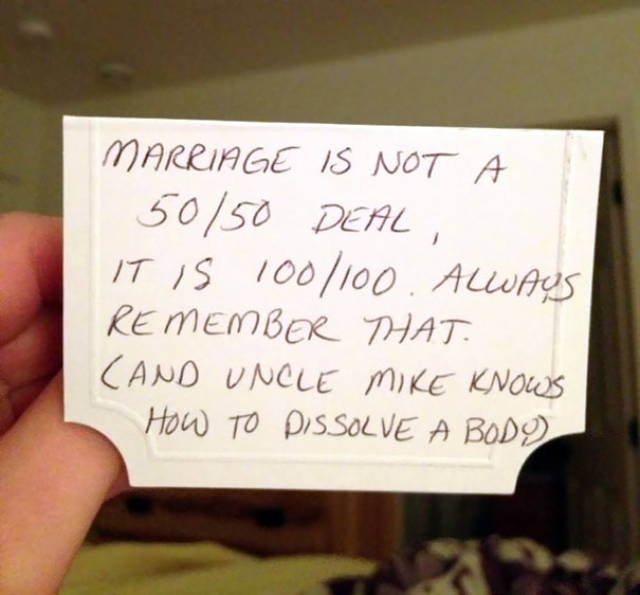 MARRIAGE IS NOT A
50/50 DEAL,
IT IS 100/100. ALWAYS
REMEMBER THAT.
(AND UNCLE MIKE KNOWS
HOW TO DISSOLVE A BODY)